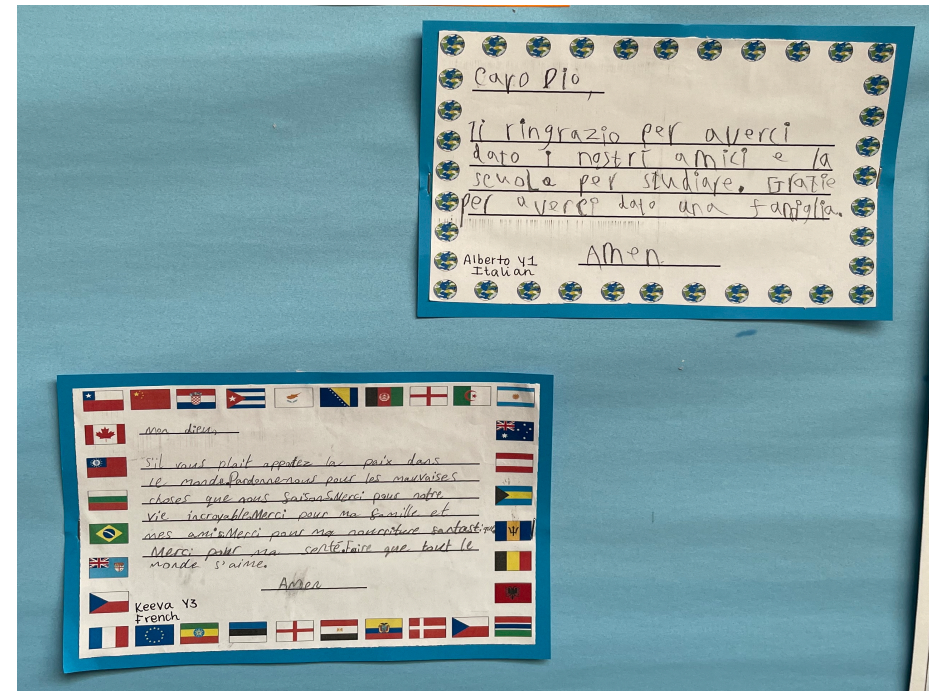 Caro Dio,
Ti ringrazio per averci
dato i nostri amici e la
scuola per studiare. Grazie
per averci dato una famiglia.
Amen
Alberto Y1
Italian
Mon dieu,
S'il vous plait apportez la paix dans
le monde.Pardonne-nous pour les mauvaises
choses que nous faisons.Merci pour notre
vie incroyable.Merci pour ma famille et
mes amis.Merci pour ma nourriture fantastique
Merci pour ma santé.Faire que tout le
monde s'aime.
Amen
Keeva Y3
French